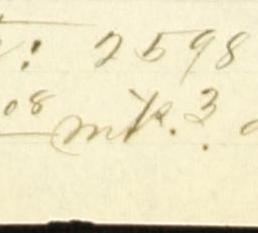 : 2598
08 mk. 3